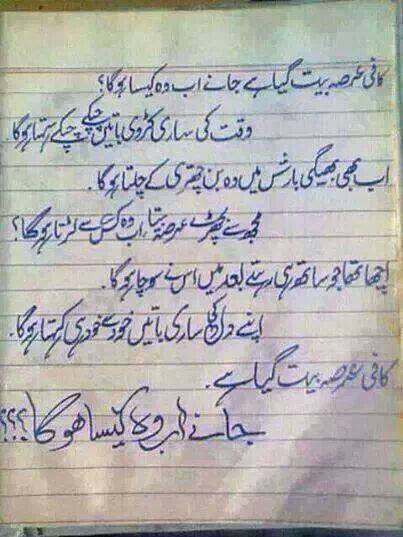 کافی عرصہ بیت گیا ہے جانے اب وہ کیسا ہوگا؟
وقت کی ساری کڑوی باتیں چپکے چپکے سہتا ہوگا۔
اب بھی بھیگی بارش میں وہ بن چھتری کے چلتا ہوگا۔
مجھ سے بچھڑے عرصہ بیتا، اب وہ کس سے لڑتا ہوگا؟
اچھا تھا جو ساتھ ہی رہتے بعد میں اس نے سوچا ہوگا۔
اپنے دل کی ساری باتیں خود سے خود ہی کہتا ہوگا۔
کافی عرصہ بیت گیا ہے۔
جانے اب وہ کیسا ہوگا؟؟؟